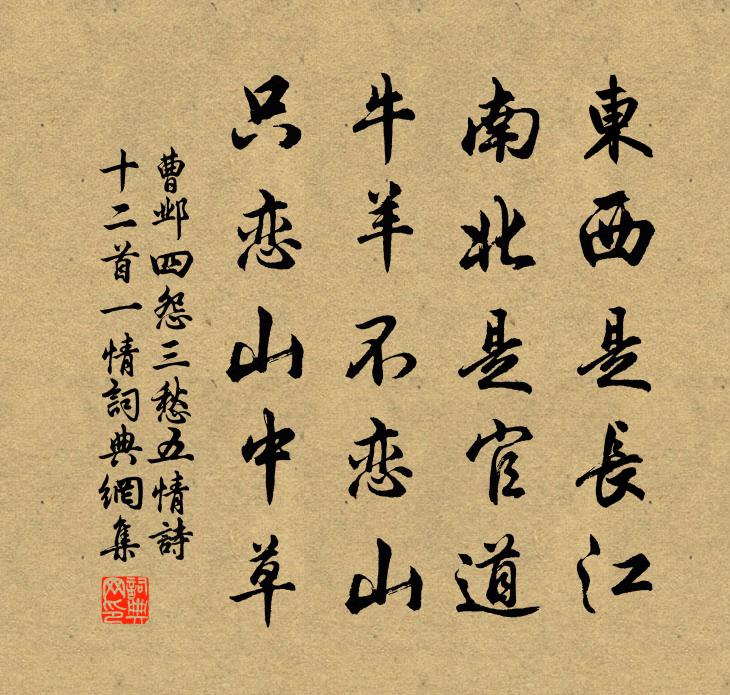 東西是長江
南北是官道
牛羊不恋山
只恋山中草
曹邺四怨三愁五情詩
十二首一情詞典網集
詞典
网印